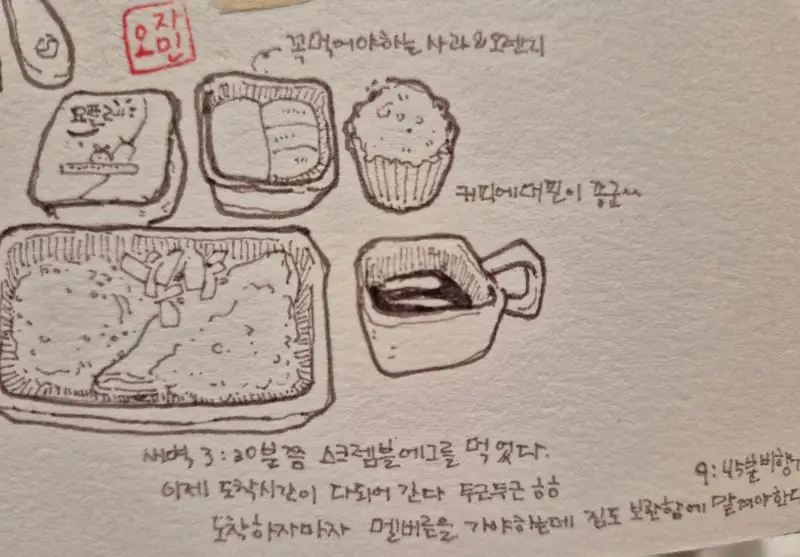 오자민
꼭 먹어야하는 사과&오렌지
요플레
커피에 머핀이 좋군~
새벽 3:20분쯤 스크램블에그를 먹었다.
이제 도착시간이 다되어 간다 두근두근 ㅎㅎ
9:45분 비행
도착하자마자 멜버른을 가야하는데 짐도 보관함에 맡겨야한다